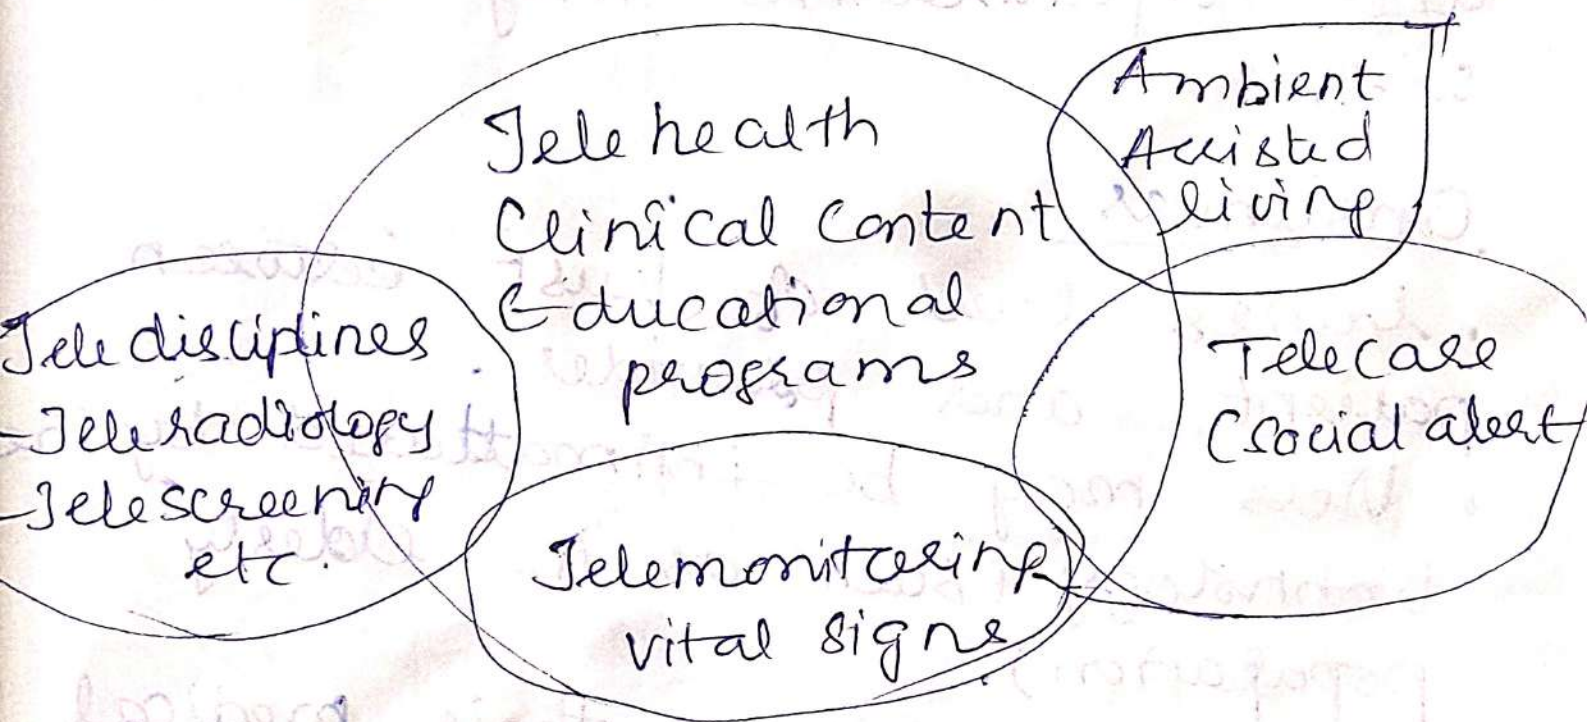 Telehealth
Clinical Content
Educational
programs
Ambient
Assisted
living
Tele disciplines
-Teleradiology
-Telescreening
etc.
Telecare
(social alert
Telemonitoring
vital signs